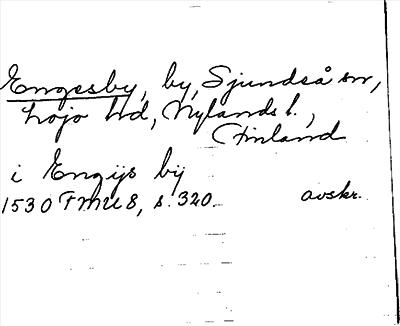 Engesby, by, Sjundeå sn,
Lojo hd, Nylands l.,
Finland
i Engijs bij
1530 FMU 8, s. 320. avskr.